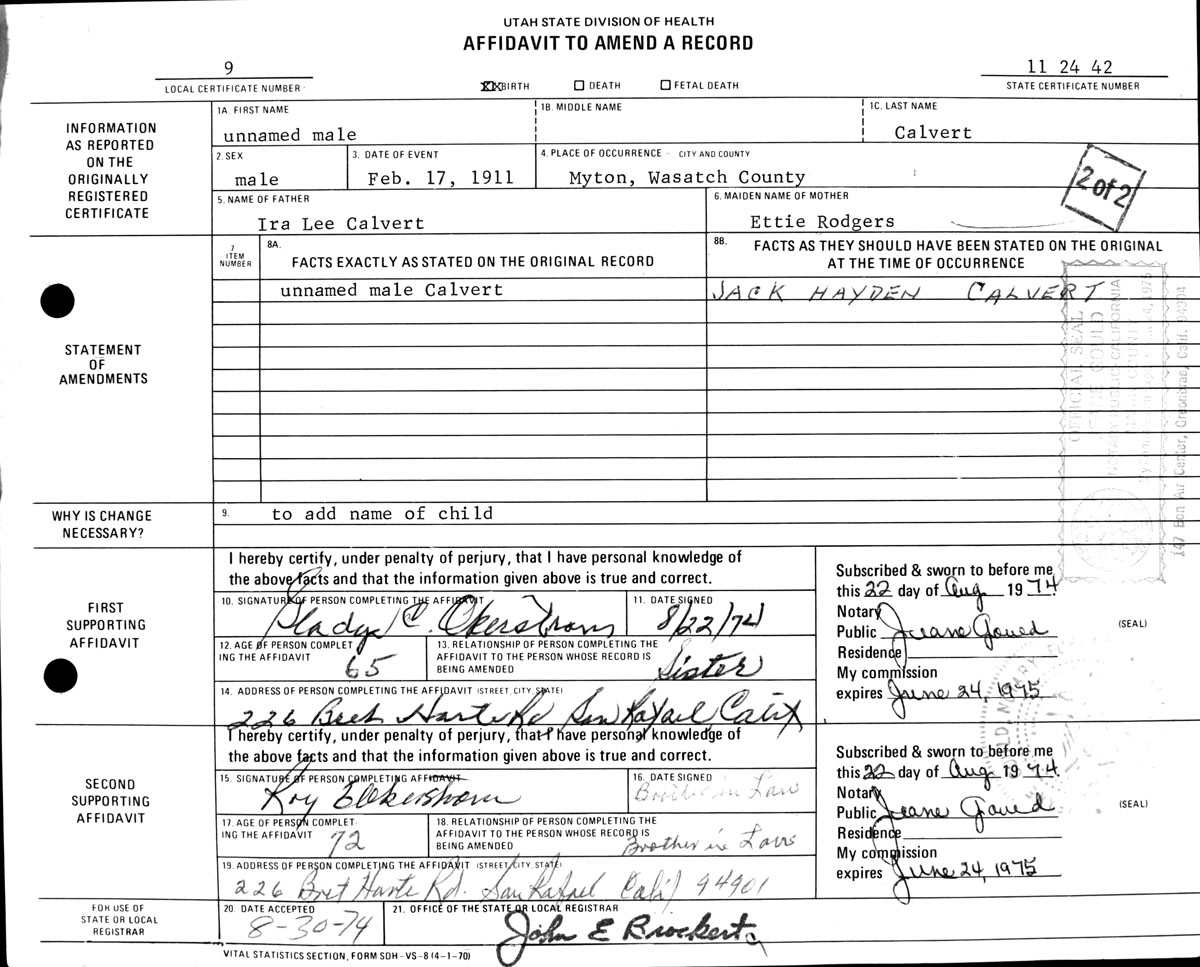 UTAH STATE DIVISION OF HEALTH
AFFIDAVIT TO AMEND A RECORD
9
LOCAL CERTIFICATE NUMBER
XX BIRTH ☐ DEATH ☐ FETAL DEATH
11 24 42
STATE CERTIFICATE NUMBER
INFORMATION
AS REPORTED
ON THE
ORIGINALLY
REGISTERED
CERTIFICATE
1A. FIRST NAME
unnamed male
1B. MIDDLE NAME
1C. LAST NAME
Calvert
2. SEX
male
3. DATE OF EVENT
Feb. 17, 1911
4. PLACE OF OCCURRENCE - CITY AND COUNTY
Myton, Wasatch County
2 of 2
5. NAME OF FATHER
Ira Lee Calvert
6. MAIDEN NAME OF MOTHER
Ettie Rodgers
STATEMENT
OF
AMENDMENTS
7
ITEM
NUMBER
8A.
FACTS EXACTLY AS STATED ON THE ORIGINAL RECORD
8B. FACTS AS THEY SHOULD HAVE BEEN STATED ON THE ORIGINAL
AT THE TIME OF OCCURRENCE
unnamed male Calvert
JACK HAYDEN CALVERT
OFFICIAL SEAL
GOULD
NOTARY PUBLIC CALIFORNIA
COUNTY
147 Bon Air Center, Greenbrae, Calif. 94904
WHY IS CHANGE
NECESSARY?
9. to add name of child
FIRST
SUPPORTING
AFFIDAVIT
I hereby certify, under penalty of perjury, that I have personal knowledge of
the above facts and that the information given above is true and correct.
10. SIGNATURE OF PERSON COMPLETING THE AFFIDAVIT
Gladys C. Okerstrom
11. DATE SIGNED
8/22/74
12. AGE OF PERSON COMPLET
ING THE AFFIDAVIT
65
13. RELATIONSHIP OF PERSON COMPLETING THE
AFFIDAVIT TO THE PERSON WHOSE RECORD IS
BEING AMENDED
Sister
14. ADDRESS OF PERSON COMPLETING THE AFFIDAVIT (STREET, CITY, STATE)
226 Bret Harte Rd San Rafael Calif
Subscribed & sworn to before me
this 22 day of Aug 1974
Notary
Public Jeane Gould
Residence
My commission
expires June 24, 1975
(SEAL)
SECOND
SUPPORTING
AFFIDAVIT
I hereby certify, under penalty of perjury, that I have personal knowledge of
the above facts and that the information given above is true and correct.
15. SIGNATURE OF PERSON COMPLETING AFFIDAVIT
Roy E Okerstrom
16. DATE SIGNED
Brother in Law
17. AGE OF PERSON COMPLET-
ING THE AFFIDAVIT
72
18. RELATIONSHIP OF PERSON COMPLETING THE
AFFIDAVIT TO THE PERSON WHOSE RECORD IS
BEING AMENDED
Brother in Law
19. ADDRESS OF PERSON COMPLETING THE AFFIDAVIT (STREET, CITY, STATE)
226 Bret Harte Rd. San Rafael Calif 94901
Subscribed & sworn to before me
this 22 day of Aug 1974
Notary
Public Jeane Gould
Residence
My commission
expires June 24, 1975
(SEAL)
FOR USE OF
STATE OR LOCAL
REGISTRAR
20. DATE ACCEPTED
8-30-74
21. OFFICE OF THE STATE OR LOCAL REGISTRAR
John E Brockert
VITAL STATISTICS SECTION, FORM SDH-VS-8 (4-1-70)